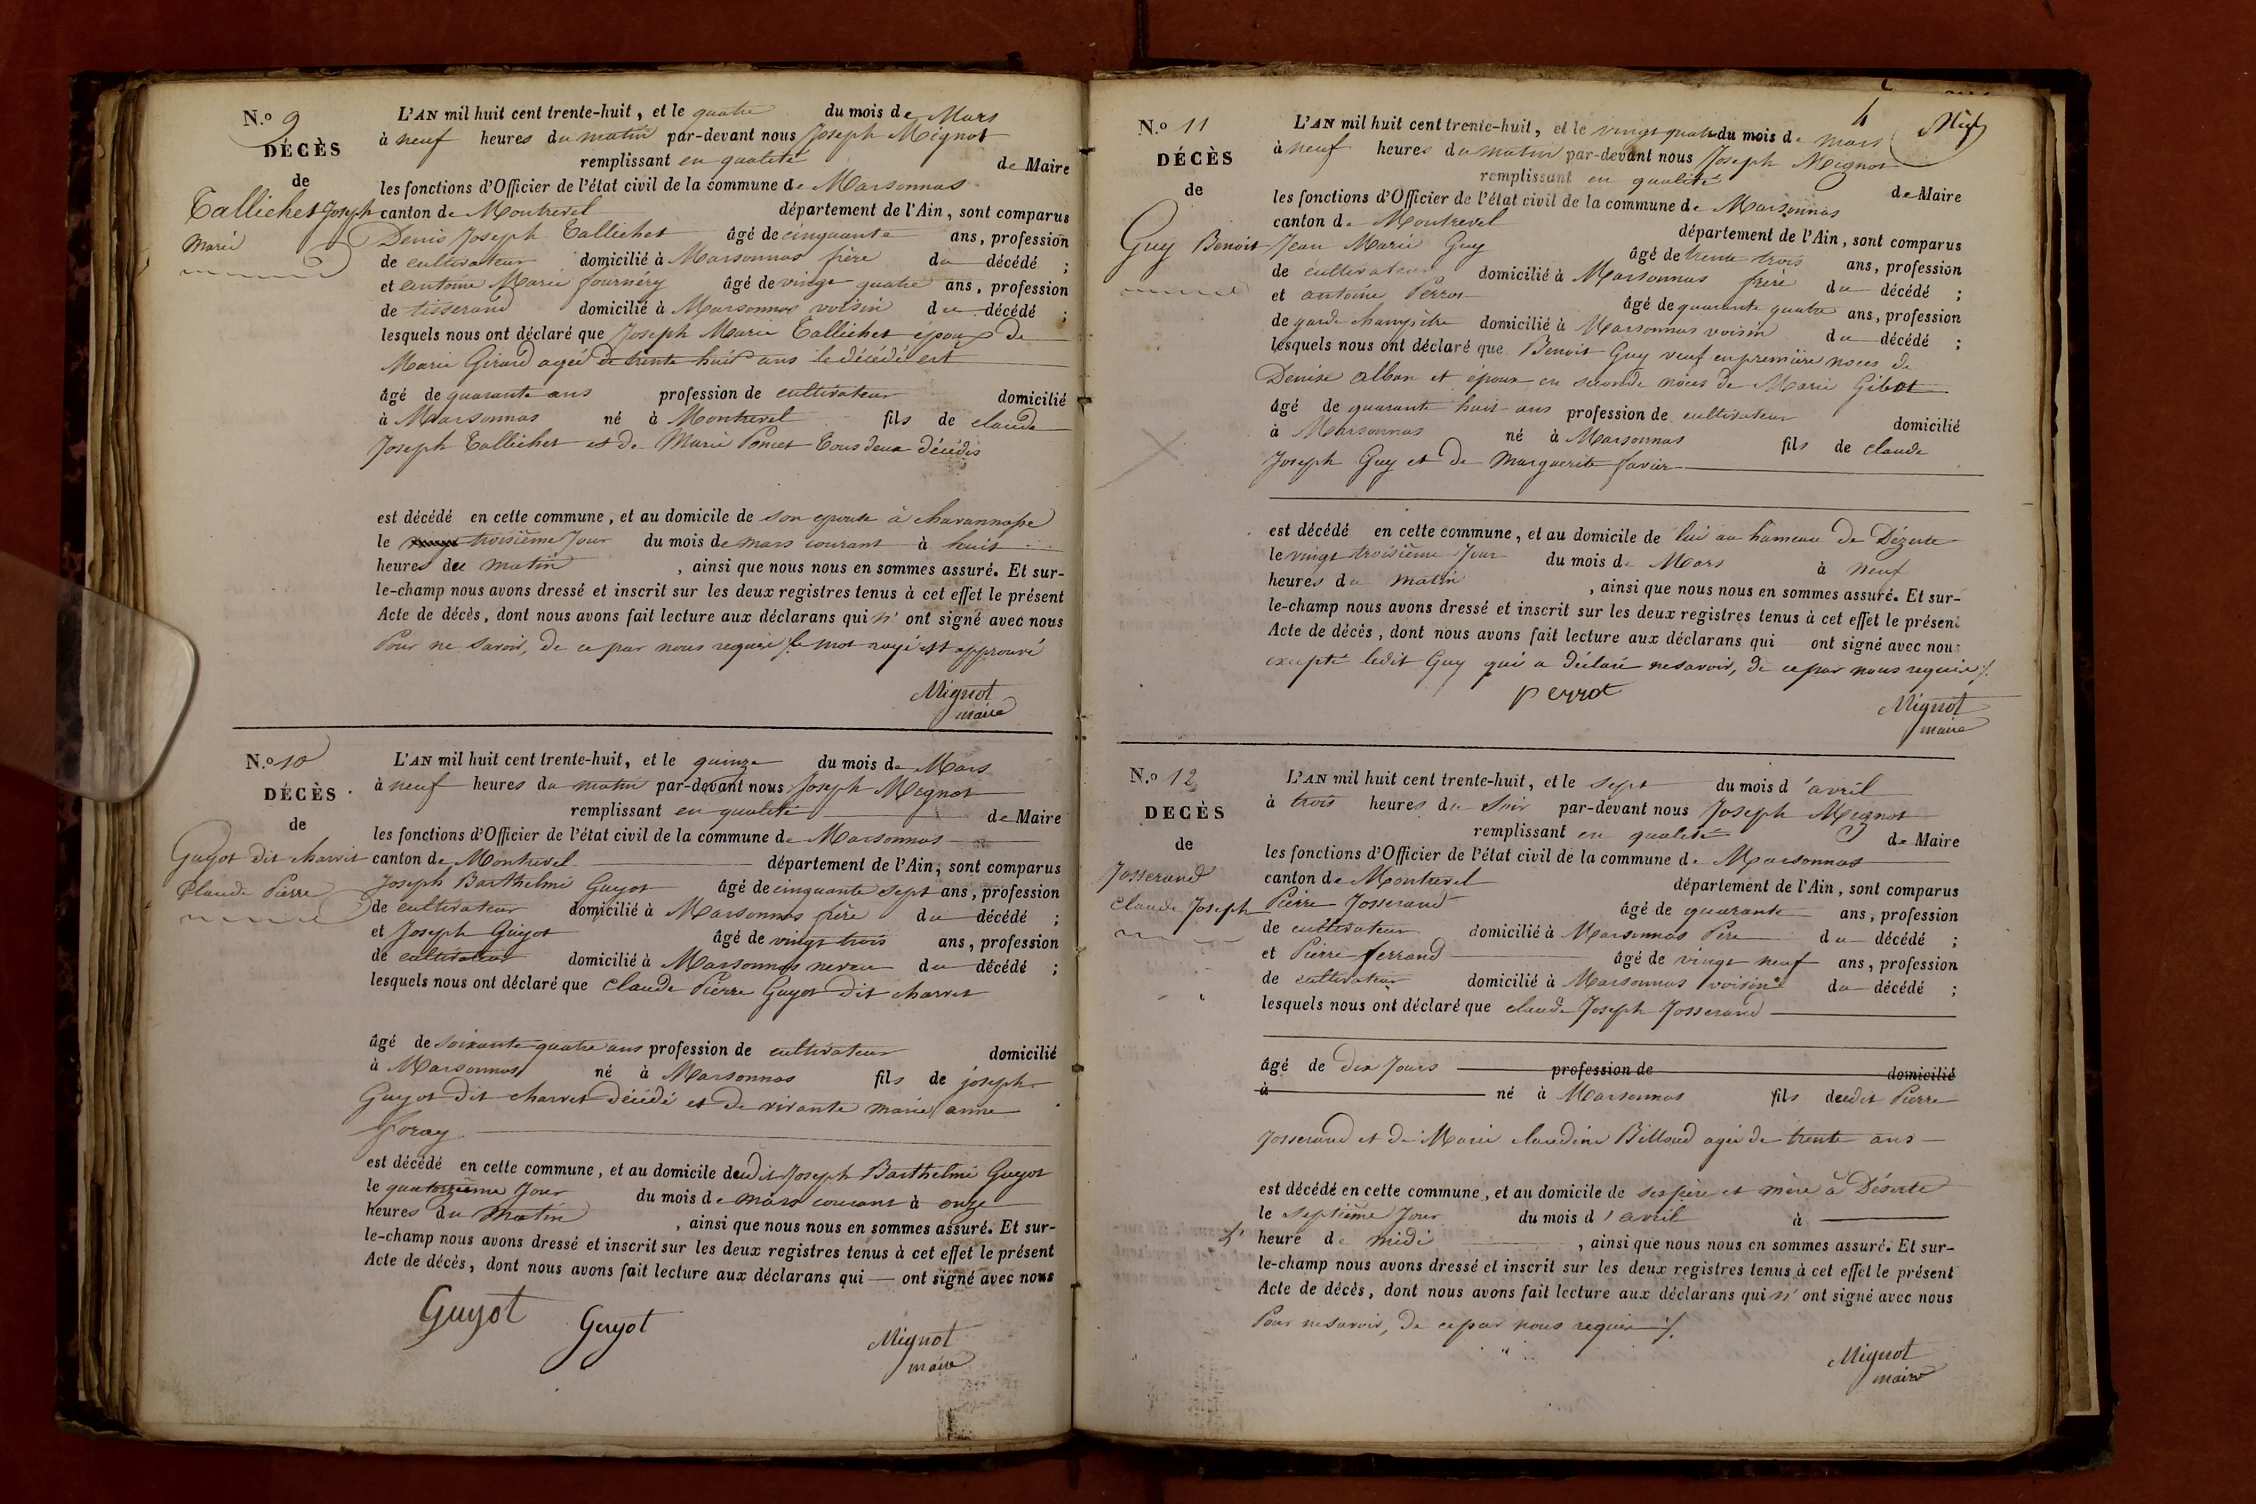 N.º 9
DÉCÈS
de
Tallichet Joseph
Marie
L'AN mil huit cent trente-huit, et le quatre du mois de Mars
à neuf heures du matin par-devant nous Joseph Mignot
remplissant en qualité de Maire
les fonctions d'Officier de l'état civil de la commune de Marsonnas
canton de Montrevel département de l'Ain, sont comparus
Denis Joseph Tallichet âgé de cinquante ans, profession
de cultivateur domicilié à Marsonnas frère du décédé ;
et antoine Marie fournéry âgé de vingt quatre ans, profession
de tisserand domicilié à Marsonnas voisin du décédé ;
lesquels nous ont déclaré que Joseph Marie Tallichet époux de
Marie Girard agée de trente huit ans le décédé est
âgé de quarante ans profession de cultivateur domicilié
à Marsonnas né à Montrevel fils de claude
Joseph Tallichet et de Marie Poncet Tous deux décédés
est décédé en cette commune, et au domicile de son epouse à chavannope
le troisième Jour du mois de mars courant à huit
heures du matin , ainsi que nous nous en sommes assuré. Et sur-
le-champ nous avons dressé et inscrit sur les deux registres tenus à cet effet le présent
Acte de décès, dont nous avons fait lecture aux déclarans qui n' ont signé avec nous
Pour ne savoir, de ce par nous requis /. le mot rayé est approuvé
Mignot
maire
N.º 10
DÉCÈS
de
Guyot dit charvet
Claude Pierre
L'AN mil huit cent trente-huit, et le quinze du mois de Mars
à neuf heures du matin par-devant nous Joseph Mignot
remplissant en qualité de Maire
les fonctions d'Officier de l'état civil de la commune de Marsonnas
canton de Montrevel département de l'Ain, sont comparus
Joseph Barthelmi Guyot âgé de cinquante sept ans, profession
de cultivateur domicilié à Marsonnas frère du décédé ;
et Joseph Guyot âgé de vingt trois ans, profession
de cultivateur domicilié à Marsonnas neveu du décédé ;
lesquels nous ont déclaré que Claude Pierre Guyot dit charvet
âgé de soixante quatre ans profession de cultivateur domicilié
à Marsonnas né à Marsonnas fils de joseph
Guyot dit charvet décédé et de vivante marie anne
foray
est décédé en cette commune, et au domicile dudit Joseph Barthelmi Guyot
le quatorzième Jour du mois de mars courant à onze
heures du matin , ainsi que nous nous en sommes assuré. Et sur-
le-champ nous avons dressé et inscrit sur les deux registres tenus à cet effet le présent
Acte de décès, dont nous avons fait lecture aux déclarans qui ont signé avec nous
Guyot Guyot
Mignot
maire
4
N.º 11
DÉCÈS
de
Guy Benoit
L'AN mil huit cent trente-huit, et le vingt quatre du mois de mars
à neuf heures du matin par-devant nous Joseph Mignot
remplissant en qualité de Maire
les fonctions d'Officier de l'état civil de la commune de Marsonnas
canton de Montrevel département de l'Ain, sont comparus
Jean Marie Guy âgé de trente trois ans, profession
de cultivateur domicilié à Marsonnas frère du décédé ;
et antoine Perrot âgé de quarante quatre ans, profession
de garde champêtre domicilié à Marsonnas voisin du décédé ;
lesquels nous ont déclaré que Benoit Guy veuf en première noces de
Denise Alban et époux en seconde noces de Marie Gibot
âgé de quarante huit ans profession de cultivateur domicilié
à Marsonnas né à Marsonnas fils de claude
Joseph Guy et de Marguerite favier
est décédé en cette commune, et au domicile de lui au hameau de Dézerte
le vingt troisième Jour du mois de Mars à neuf
heures du matin , ainsi que nous nous en sommes assuré. Et sur-
le-champ nous avons dressé et inscrit sur les deux registres tenus à cet effet le présent
Acte de décès, dont nous avons fait lecture aux déclarans qui ont signé avec nous
excepté ledit Guy qui a déclaré ne savoir, de ce par nous requis /.
perrot
Mignot
maire
N.º 12
DECÈS
de
Josserand
Claude Joseph
L'AN mil huit cent trente-huit, et le sept du mois d'avril
à trois heures du soir par-devant nous Joseph Mignot
remplissant en qualité de Maire
les fonctions d'Officier de l'état civil de la commune de Marsonnas
canton de Montrevel département de l'Ain, sont comparus
Pierre Josserand âgé de quarante ans, profession
de cultivateur domicilié à Marsonnas Pere du décédé ;
et Pierre ferrand âgé de vingt neuf ans, profession
de cultivateur domicilié à Marsonnas voisin du décédé ;
lesquels nous ont déclaré que claude Joseph Josserand
âgé de dix Jours profession de domicilié
à né à Marsonnas fils dudit Pierre
Josserand et de Marie claudine Billoud agée de trente ans
est décédé en cette commune, et au domicile de ses père et mère à Déserte
le septième Jour du mois d'avril à
heure de midi , ainsi que nous nous en sommes assuré. Et sur-
le-champ nous avons dressé et inscrit sur les deux registres tenus à cet effet le présent
Acte de décès, dont nous avons fait lecture aux déclarans qui n' ont signé avec nous
Pour ne savoir, de ce par nous requis /.
Mignot
maire